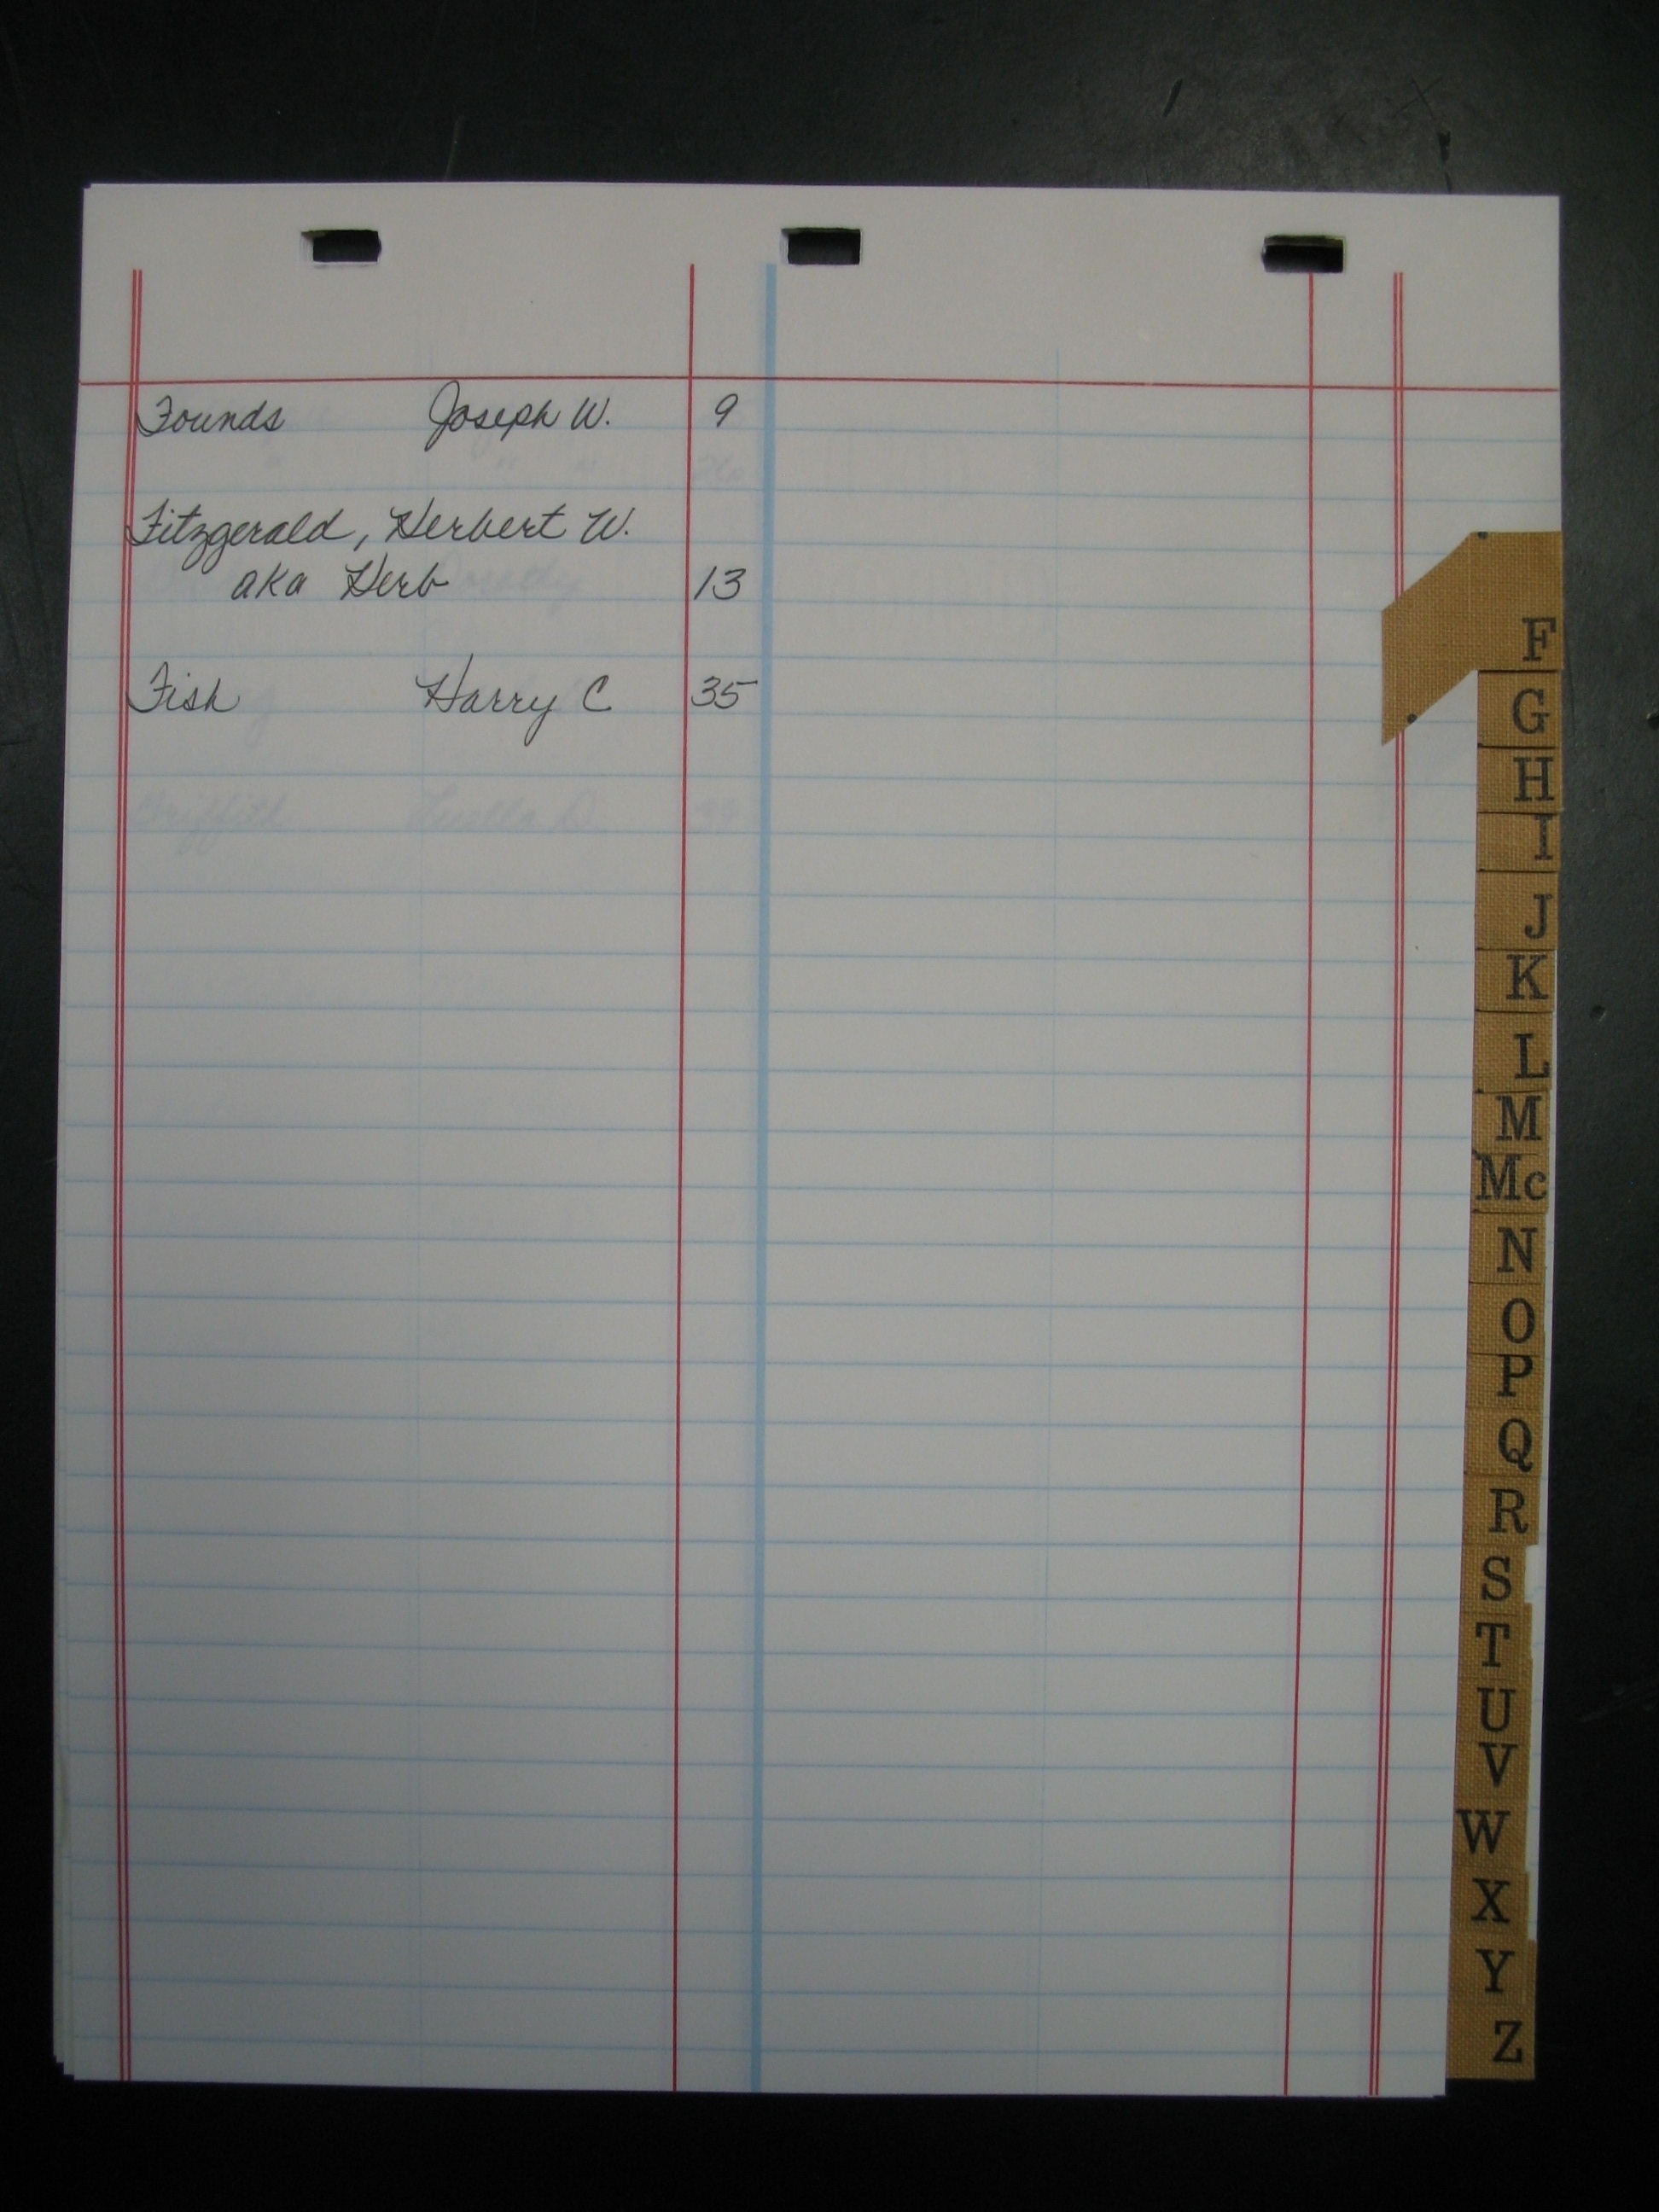 Founds Joseph W. 9
Fitzgerald, Herbert W.
aka Herb 13
Fish Harry C 35
Griffith Luella D. 39
F
G
H
I
J
K
L
M
Mc
N
O
P
Q
R
S
T
U
V
W
X
Y
Z